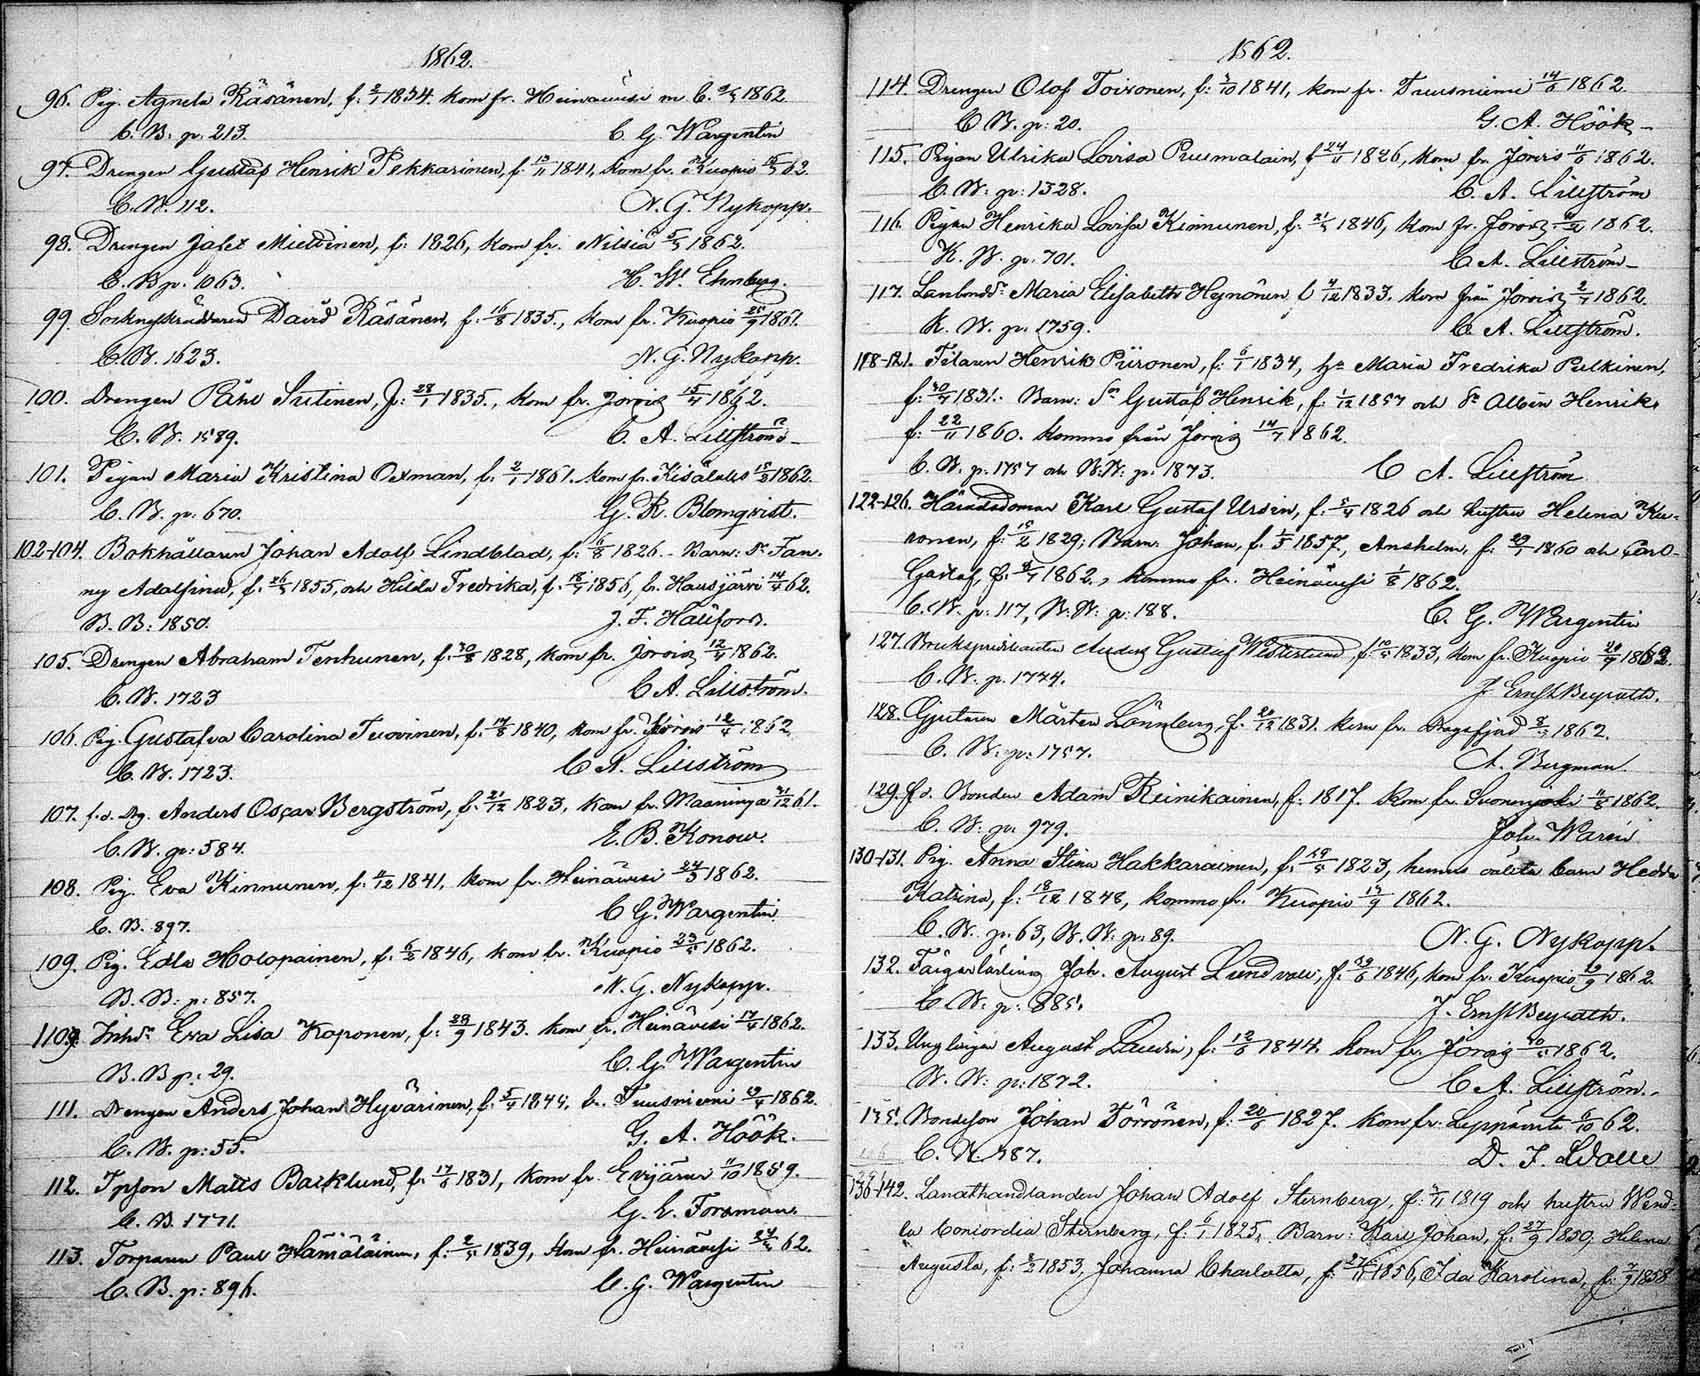 1862.
96. Pig. Agneta Räsänen, f: 2/1 1834. kom fr. Heinävesi m. C. 1862.
C. B: p: 213. C. G. Wargentin
97. Drengen Gustaf Henrik Pekkarinen, f: 13/11 1841, kom fr. Kuopio 62.
C. B. 112. N. G. Nykopp.
98. Drengen Jafet Miettinen, f: 1826, kom fr. Nilsiä 5/5 1862.
C. B p: 1063. H. W. Ehnberg.
99. Sockneskräddaren David Räsänen, f: 16/8 1835., kom fr. Kuopio 25/9 1861.
C. B. 1623. N. G. Nykopp.
100. Drengen Påhl Sutinen, f: 28/1 1835., kom fr. Jorois 15/4 1862.
C. B. 1589. C. A. Lillström
101. Pigan Maria Kristina Oxman, f: 2/1 1861. kom fr. Kisälaks 15/2 1862.
C. B. p: 670. G. R. Blomqvist.
102-104. Bokhållaren Johan Adolf Lindblad, f: 6/8 1826. Barn: Dr Fan-
ny Adolfina, f: 26/5 1855, och Hilda Fredrika, f: 18/7 1856, fr. Hausjärvi 14/4 62.
B. B: 1850. J. F. Hallfors.
105. Drengen Abraham Tenhunen, f: 30/8 1828, kom fr. Jorois 12/4 1862.
C. B. 1723 C A. Lillström.
106. Pig. Gustafva Carolina Tuovinen, f: 14/8 1840, kom fr. Jorois 12/4 1862.
C. B. 1723. C A. Lillström
107. f.d. Dg. Anders Oscar Bergström, f: 21/12 1823, kom fr. Maaninga 31/12 61.
C. B. p: 584. E. B. Konow.
108. Pig. Eva Kinnunen, f: 5/12 1841, kom fr. Heinävesi 24/3 1862.
C. B. 897. C G. Wargentin
109. Pig. Edla Holopainen, f: 6/2 1846, kom fr. Kuopio 23/5 1862.
B. B: p: 857. N. G. Nykopp.
110. Inh:dr Eva Lisa Koponen, f: 28/9 1843. kom fr. Heinävesi 17/4 1862.
B. B p: 29. C. G. Wargentin
111. Drengen Anders Johan Hyvärinen, f: 5/4 1844, fr. Tuusniemi 19/4 1862.
C. B. p: 55. G. A. Höök.
112. Tpson Matts Backlund, f: 17/6 1831, kom fr. Evijärvi 11/10 1859.
C. B. 1771. G. E. Forsman.
113. Torparen Paul Hämäläinen, f: 2/5 1839, kom fr. Heinävesi 24/5 62.
C. B. p: 896. C. G. Wargentin
1862.
114. Drengen Olof Toivonen, f: 3/10 1841, kom fr. Tuusniemi 14/6 1862.
C B. p: 20. G. A. Höök
115. Pigan Ulrika Lovisa Puumalain, f 24/11 1826, kom fr. Jorois 11/6 1862.
C. B: p: 1328. C. A. Lillström
116. Pigan Henrika Lovisa Kinnunen, f: 21/5 1846, kom fr. Jorois 1862.
K. B. p. 701. C A. Lillström
117. Lanbondedr Maria Elisabeth Heynönen, f 4/12 1833. kom från Jorois 2/7 1862.
K. B. p. 1759. C. A. Lillström.
118-121. Filaren Henrik Piironen, f: 6/1 1834, h:a Maria Fredrika Pulkinen,
f: 30/4 1831. Barn: Sn Gustaf Henrik, f: 1/12 1857 och Sn Albin Henrik,
f: 22/11 1860. komma från Jorois 14/7 1862.
C. B. p. 1757 och B. B: p: 1873. C A. Lillström
122-126. Häradsdomar Karl Gustaf Ursin, f: 5/4 1826 och hustru Helena Ku-
ronen, f: 15/2 1829; Barn: Johan, f. 1/5 1857, Anshelm, f: 29/1 1860 och Carl-
Gustaf, f: 8/7 1862., komma fr. Heinävesi 1/8 1862.
C. B. p: 117, B. B: p: 188. C. G. Wargentin
127. Brukspredikanten Anders Gustaf Westerlund, f: 10/5 1833, kom fr. Kuopio 20/9 1862.
C. B. p. 1774. J. Ernst Beyrath.
128. Gjutaren Mårten Lönnberg, f: 20/12 1831. kom fr. Dragsfjerd 8/5 1862.
C. B. p: 1757. A. Bergman.
129. fd. Bonden Adam Reinikainen, f: 1817. kom fr. Suonenjoki 11/8 1862.
C. B: p. 979. Joh. Warén
130-131. Pig. Anna Stina Hakkarainen, f: 29/5 1823, hennes oäkta barn Hedda
Katrina, f: 18/12 1848, komma fr. Kuopio 17/9 1862.
C. B. p. 63, B. B: p: 89. N. G. Nykopp.
132. Färgarlärling Joh. August Lundvall, f: 1846, kom fr. Kuopio 19/9 1862.
C B: p: 885. J. Ernst Beyrath.
133. Ynglingen August Laurin, f: 12/6 1844. kom fr. Jorois 1862.
B. B: p: 1872. C A. Lillström.
135. Bondeson Johan Törrönen, f: 20/6 1827. kom fr. Leppävirta 6/10 62.
C. B 387. D. F. Walle
136-142. Lanthandlanden Johan Adolf Sternberg, f: 3/11 1819 och hustru Wend-
la Concordia Sternberg, f: 6/1 1825, Barn: Karl Johan, f: 27/9 1850, Helena
Augusta, f: 3/2 1853, Johanna Charlotta, f: 1856, Ida Karolina, f: 7/9 1858